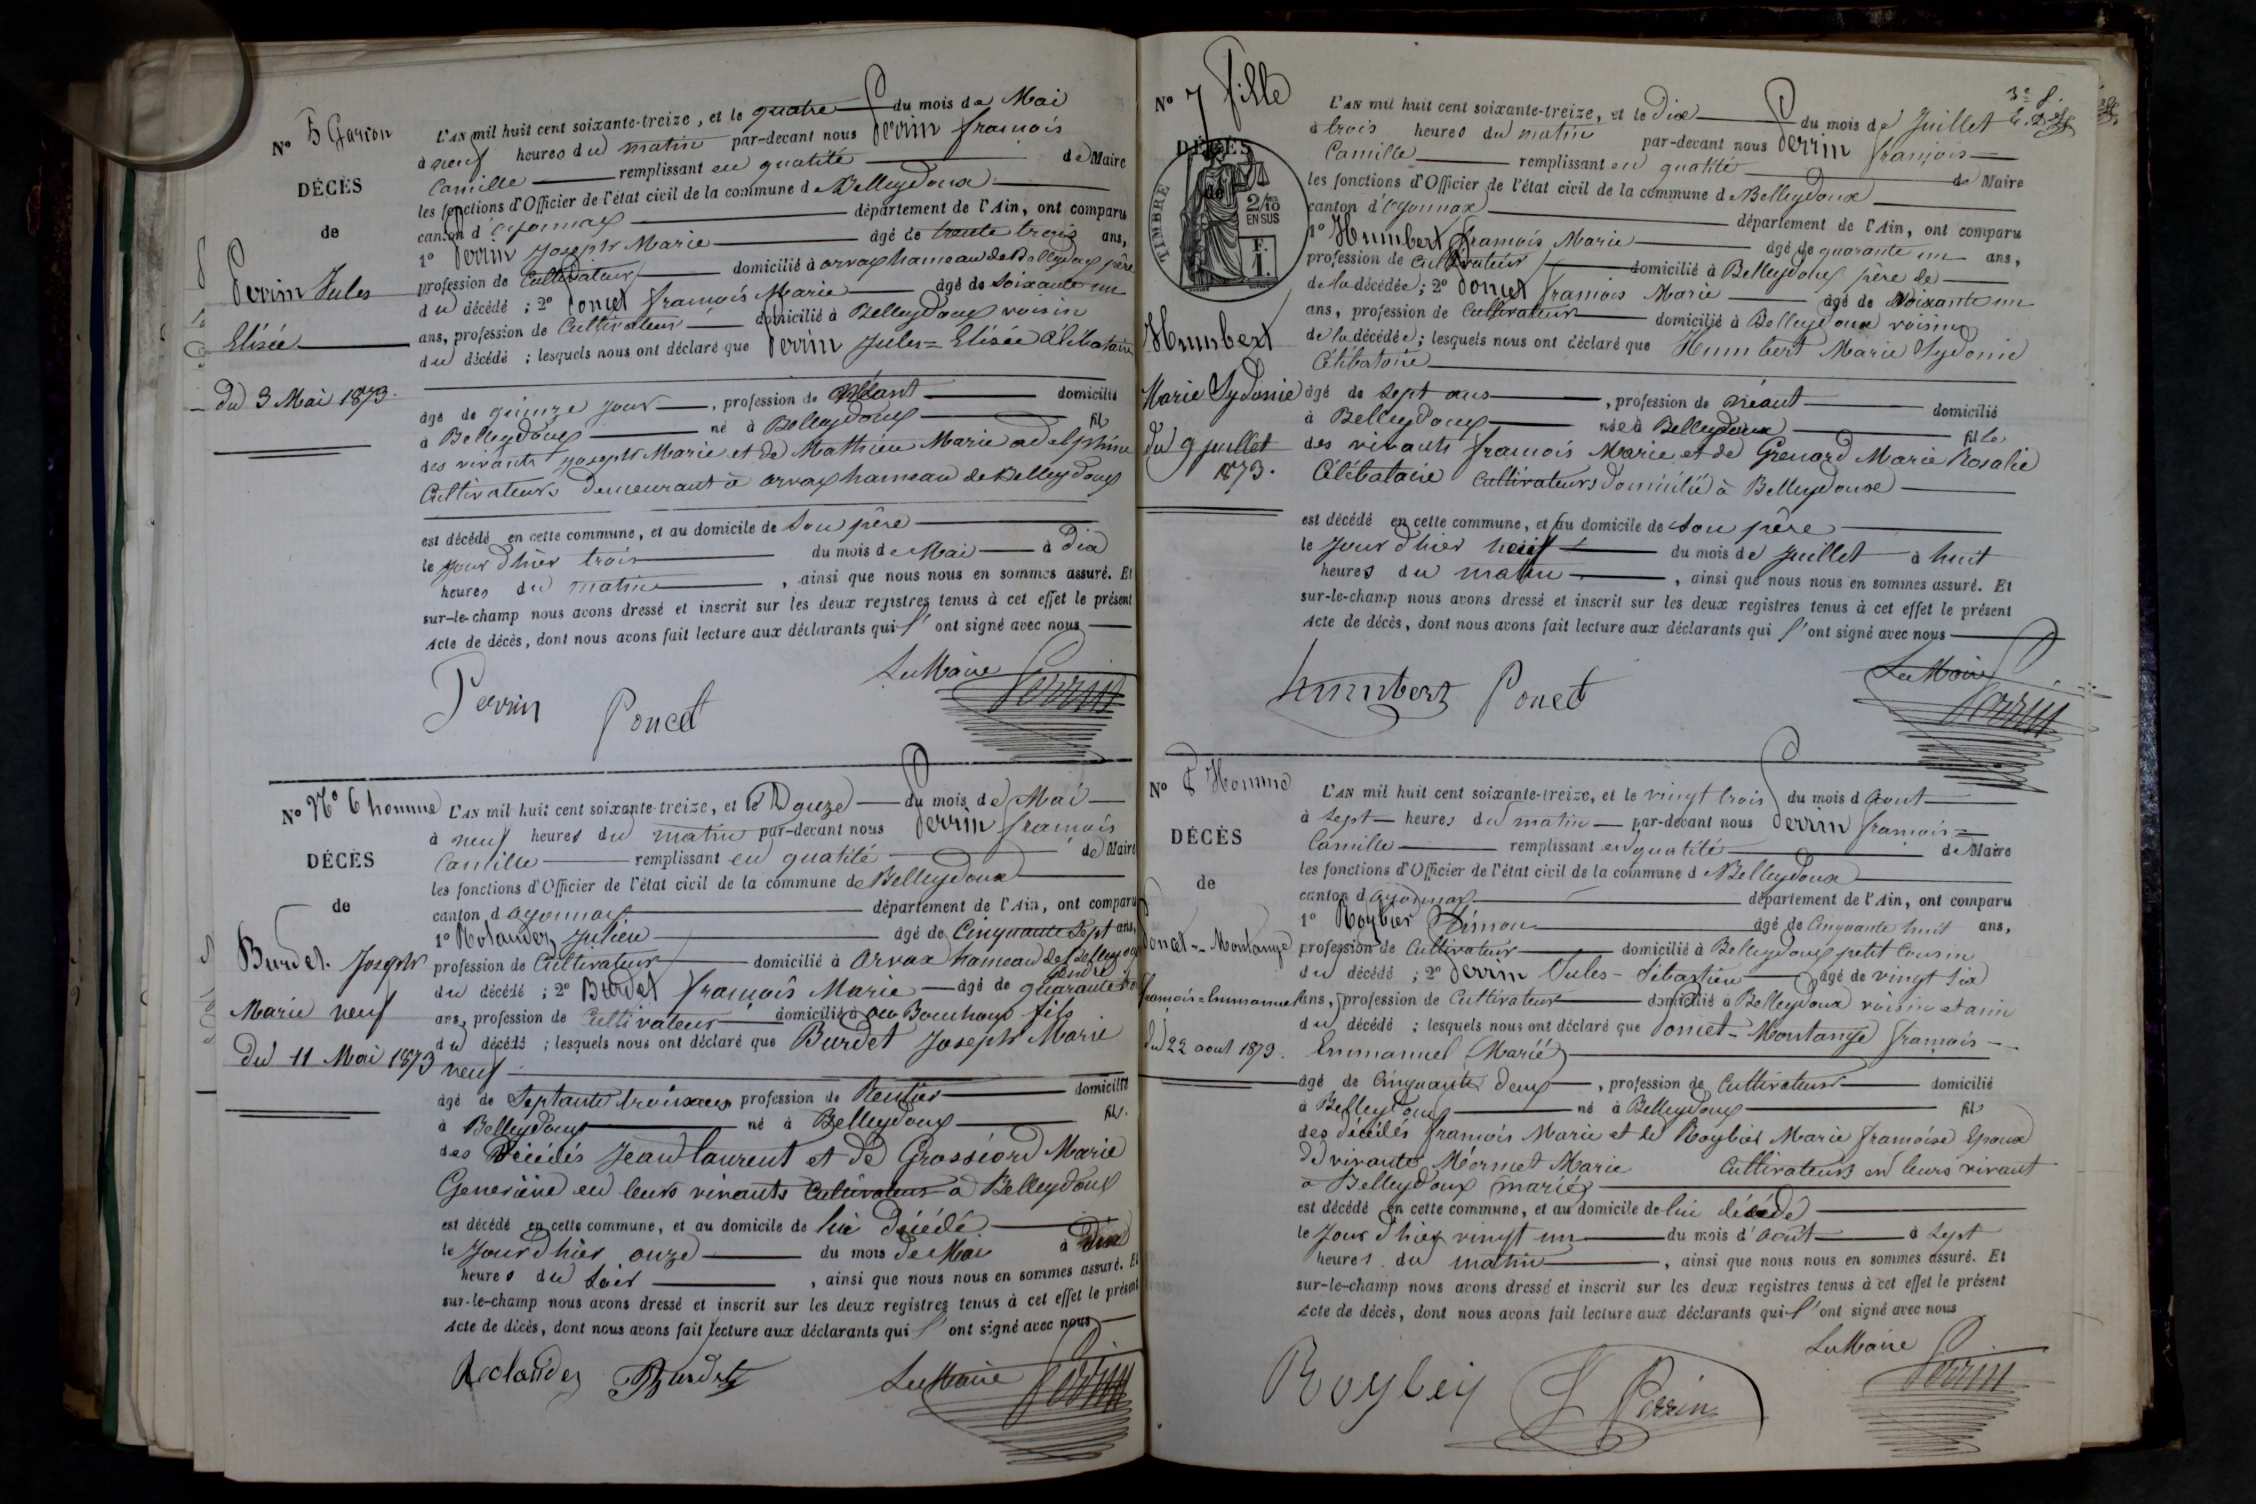 N° 5 Garçon
DÉCÈS
de
Perrin Jules
Elisée
du 3 Mai 1873.
L'AN mil huit cent soixante-treize, et le quatre du mois de Mai
à neuf heures du matin par-devant nous Perrin françois
Camille remplissant en qualité de Maire
les fonctions d'Officier de l'état civil de la commune de Belleydoux
canton d'oyonnax département de l'Ain, ont comparu
1° Perrin Joseph Marie âgé de trente trois ans,
profession de Cultivateur domicilié à orvax hameau de Belleydoux père
du décédé ; 2° Poncet françois Marie âgé de soixante un
ans, profession de Cultivateur domicilié à Belleydoux voisin
du décédé ; lesquels nous ont déclaré que Perrin Jules = Elisée Célibataire
âgé de quinze jour , profession de Néant domicilié
à Belleydoux né à Belleydoux fils
des vivants Joseph Marie et de Mathieu Marie adelphine
Cultivateurs demeurant à orvax hameau de Belleydoux
est décédé en cette commune, et au domicile de son père
le jour d'hier trois du mois de Mai à dix
heures du matin , ainsi que nous nous en sommes assuré. Et
sur-le-champ nous avons dressé et inscrit sur les deux registres tenus à cet effet le présent
Acte de décès, dont nous avons fait lecture aux déclarants qui l'ont signé avec nous
Le Maire
Perrin Poncet Perrin
N° N° 6 homme
DÉCÈS
de
Burdet Joseph
Marie veuf
du 11 Mai 1873
L'AN mil huit cent soixante-treize, et le Douze du mois de Mai
à neuf heures du matin par-devant nous Perrin françois
Camille remplissant en qualité de Maire
les fonctions d'Officier de l'état civil de la commune de Belleydoux
canton d'oyonnax département de l'Ain, ont comparu
1° Rolandez Julien âgé de Cinquante sept ans,
profession de Cultivateur domicilié à Orvax hameau de Belleydoux
gendre
du décédé ; 2° Burdet françois Marie âgé de quarante
ans, profession de Cultivateur domicilié à au Bouchoux fils
du décédé ; lesquels nous ont déclaré que Burdet Joseph Marie
veuf
âgé de Septante trois ans profession de Rentier domicilié
à Belleydoux né à Belleydoux fils
des Décédés Jean laurent et de Grossiord Marie
Geneviève en leurs vivants Cultivateurs à Belleydoux
est décédé en cette commune, et au domicile de lui Décédé
le Jour d'hier onze du mois de Mai à dix
heures du soir , ainsi que nous nous en sommes assuré. Et
sur-le-champ nous avons dressé et inscrit sur les deux registres tenus à cet effet le présent
Acte de décès, dont nous avons fait lecture aux déclarants qui l'ont signé avec nous
Rolandez Burdet Le Maire Perrin
N° 7 fille
DÉCÈS
de
TIMBRE
2/10
EN SUS
F.
1.
Humbert
Marie Sydonie
du 9 juillet
1873.
L'AN mil huit cent soixante-treize, et le Dix du mois de Juillet
à trois heures du matin par-devant nous Perrin françois
Camille remplissant en qualité de Maire
les fonctions d'Officier de l'état civil de la commune de Belleydoux
canton d'oyonnax département de l'Ain, ont comparu
1° Humbert françois Marie âgé de quarante un ans,
profession de Cultivateur domicilié à Belleydoux père de
de la décédée ; 2° Poncet françois Marie âgé de soixante un
ans, profession de Cultivateur domicilié à Belleydoux voisin
de la décédée ; lesquels nous ont déclaré que Humbert Marie Sydonie
Célibataire
âgé de sept ans , profession de Néant domicilié
à Belleydoux née à Belleydoux fille
des vivants françois Marie et de Grenard Marie Rosalie
Célébataire Cultivateurs domicilié à Belleydoux
est décédé en cette commune, et au domicile de son père
le jour d'hier neuf du mois de juillet à huit
heures du matin , ainsi que nous nous en sommes assuré. Et
sur-le-champ nous avons dressé et inscrit sur les deux registres tenus à cet effet le présent
Acte de décès, dont nous avons fait lecture aux déclarants qui l'ont signé avec nous
Le Maire
humbert Poncet Perrin
N° 8 Homme
DÉCÈS
de
Poncet = Montange
françois = Emmanuel
du 22 aout 1873.
L'AN mil huit cent soixante-treize, et le vingt trois du mois d'aout
à sept heures du matin par-devant nous Perrin françois
Camille remplissant en qualité de Maire
les fonctions d'Officier de l'état civil de la commune d Belleydoux
canton d'oyonnax département de l'Ain, ont comparu
1° Roybier Simon âgé de Cinquante huit ans,
profession de Cultivateur domicilié à Belleydoux petit Cousin
du décédé ; 2° Perrin Jules - Sébastien âgé de vingt six
ans, profession de Cultivateur domicilié à Belleydoux voisin et ami
du décédé ; lesquels nous ont déclaré que Poncet - Montange françois
Emmanuel Marié
âgé de Cinquante deux , profession de Cultivateur domicilié
à Belleydoux né à Belleydoux fils
des décédés françois Marie et de Roybier Marie françoise Epoux
de vivante Mermet Marie Cultivateurs en leurs vivant
à Belleydoux mariés
est décédé en cette commune, et au domicile de lui décédé
le Jour d'hier vingt un du mois d'août à sept
heures du matin , ainsi que nous nous en sommes assuré. Et
sur-le-champ nous avons dressé et inscrit sur les deux registres tenus à cet effet le présent
Acte de décès, dont nous avons fait lecture aux déclarants qui l'ont signé avec nous
Le Maire
Perrin Perrin